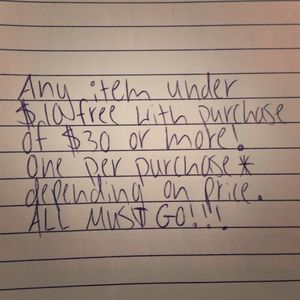 Any item under
$10 free with purchase
of $30 or more!
One per purchase*
depending on price.
ALL MUST GO!!!